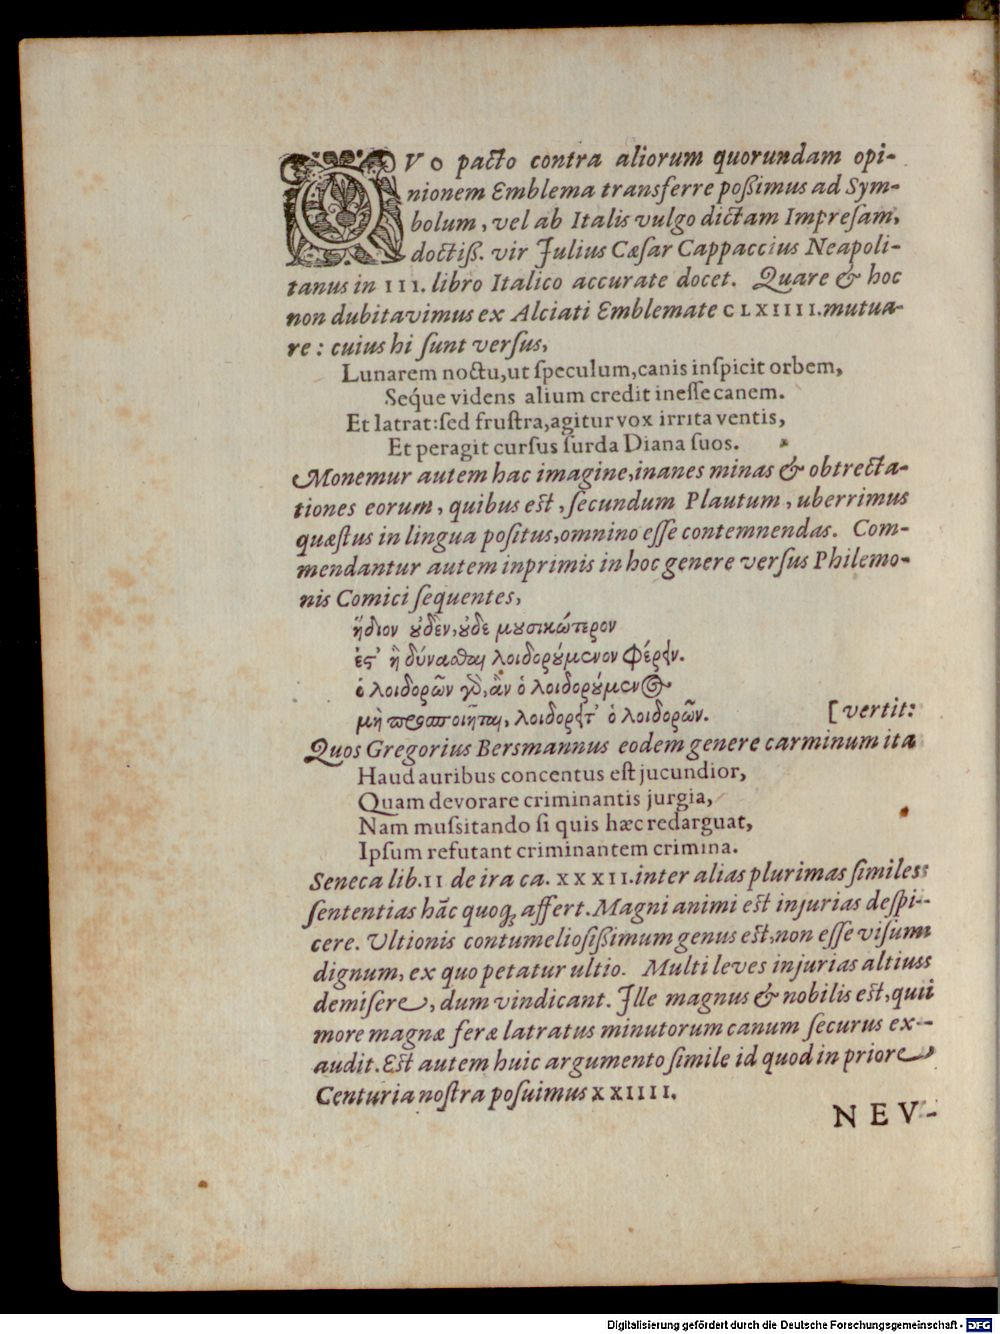 QVO pacto contra aliorum quorundam opi-
nionem Emblema transferre poßimus ad Sym-
bolum, vel ab Italis vulgo dictam Impreſam,
doctiß. vir Julius Cæſar Cappaccius Neapoli-
tanus in III. libro Italico accurate docet. Quare & hoc
non dubitavimus ex Alciati Emblemate CLXIIII. mutua-
re: cuius hi ſunt verſus,
Lunarem noctu, ut ſpeculum, canis inſpicit orbem,
Seq́ue videns alium credit ineſſe canem.
Et latrat: ſed fruſtra, agitur vox irrita ventis,
Et peragit curſus ſurda Diana ſuos.
Monemur autem hac imagine, inanes minas & obtrecta-
tiones eorum, quibus est, ſecundum Plautum, uberrimus
quæſtus in lingua poſitus, omnino eſſe contemnendas. Com-
mendantur autem inprimis in hoc genere verſus Philemo-
nis Comici ſequentes,
ἥδιον ȣ̓δὲν, ȣ̓δὲ μȣσικώτερον
ἐς' ἢ δύναϑαι λοιδορȣ́μενον φέρειν.
ὁ λοιδορῶν γὸ, ἂν ὁ λοιδορȣ́μενος
μὴ προσποιῆται, λοιδορεῖτ' ὁ λοιδορῶν.
[vertit:
Quos Gregorius Bersmannus eodem genere carminum ita
Haud auribus concentus eſt jucundior,
Quam devorare criminantis jurgia,
Nam muſsitando ſi quis hæc redarguat,
Ipſum refutant criminantem crimina.
Seneca lib. II de ira ca. XXXII. inter alias plurimas ſimiles
ſententias hãc quoq; affert. Magni animi est injurias deſpi-
cere. Vltionis contumelioſißimum genus est, non eſſe viſum
dignum, ex quo petatur ultio. Multi leves injurias altius
demiſere, dum vindicant. Ille magnus & nobilis est, qui
more magnæ feræ latratus minutorum canum ſecurus ex-
audit. Est autem huic argumento ſimile id quod in priore
Centuria noſtra poſuimus XXIIII.
NEV-
Digitalisierung gefördert durch die Deutsche Forschungsgemeinschaft - DFG